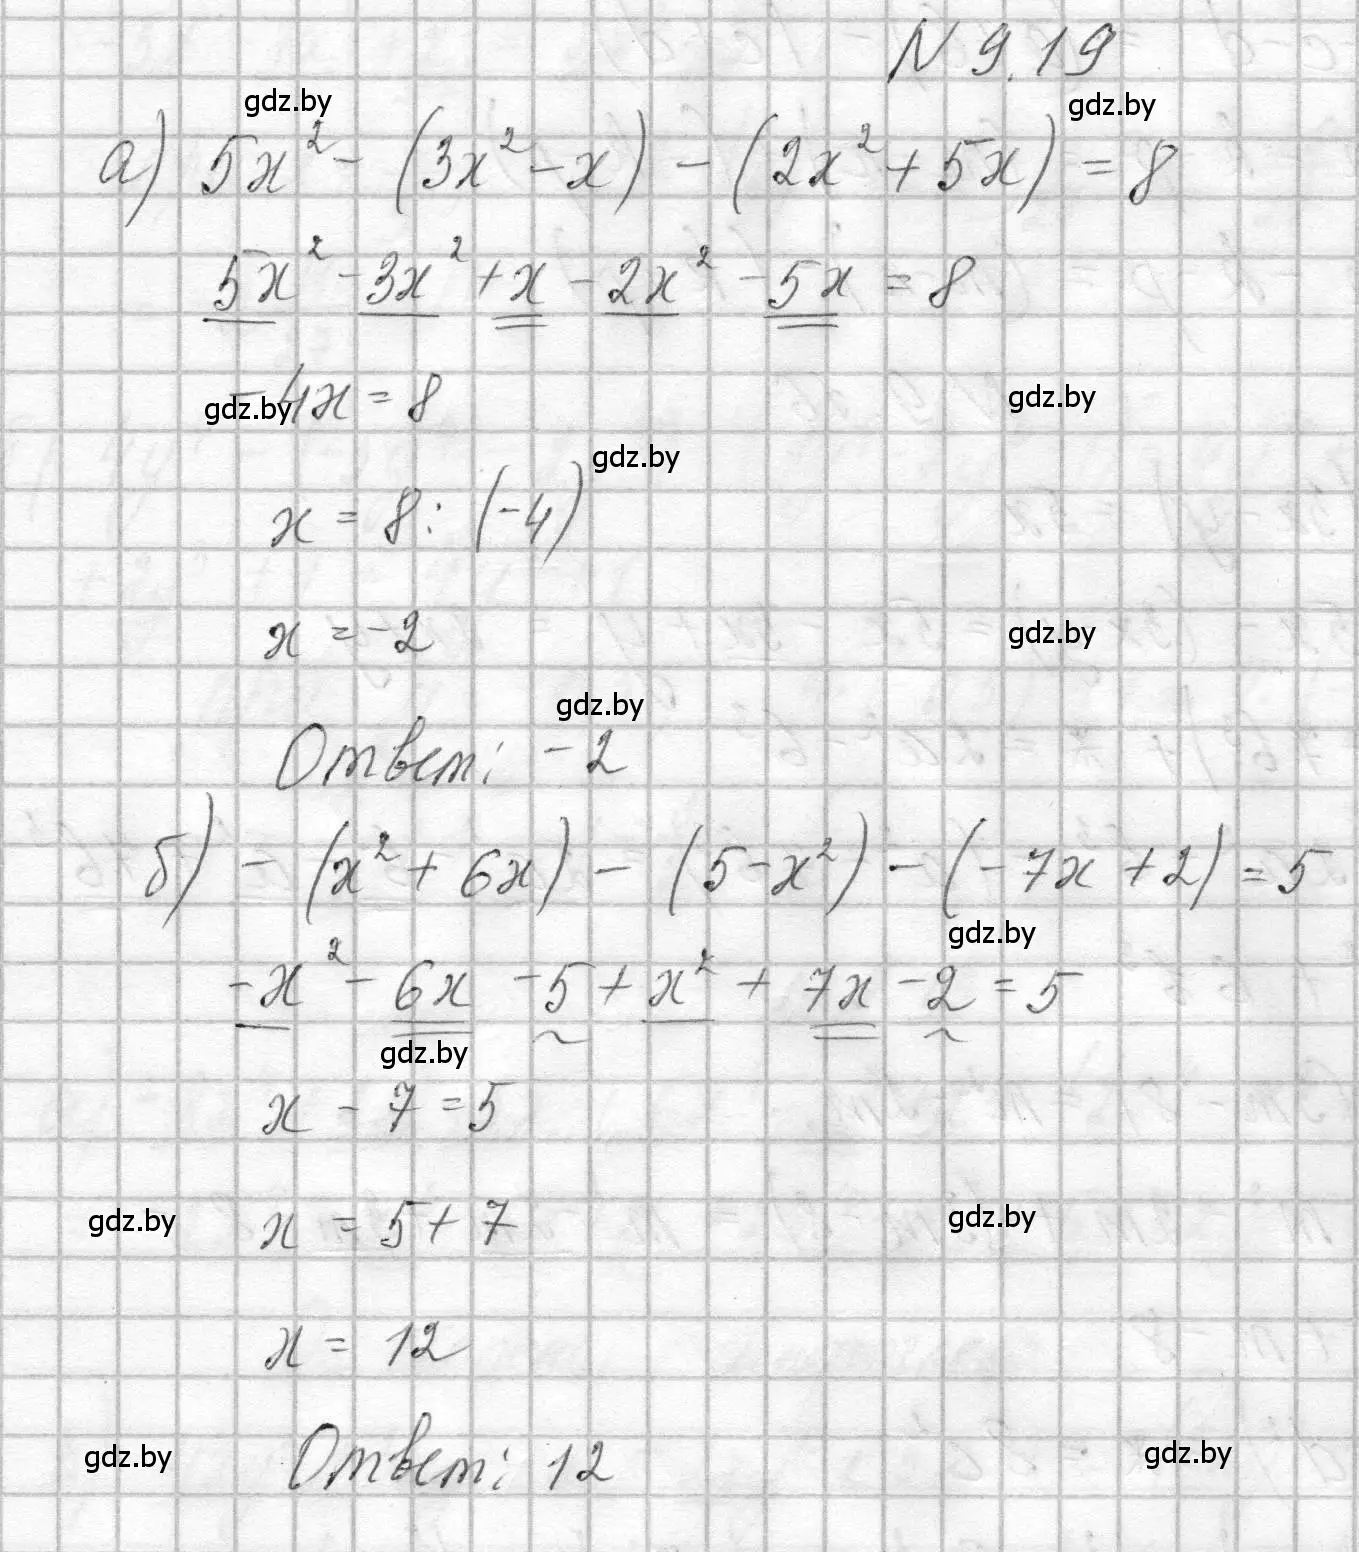 N 9.19
gdz.by
gdz.by
а) 5x² - (3x² - x) - (2x² + 5x) = 8
5x² - 3x² + x - 2x² - 5x = 8
-4x = 8
gdz.by
gdz.by
gdz.by
x = 8 : (-4)
x = -2
gdz.by
gdz.by
Ответ: -2
б) - (x² + 6x) - (5 - x²) - (-7x + 2) = 5
gdz.by
-x² - 6x - 5 + x² + 7x - 2 = 5
gdz.by
x - 7 = 5
gdz.by
x = 5 + 7
gdz.by
x = 12
gdz.by
Ответ: 12
gdz.by